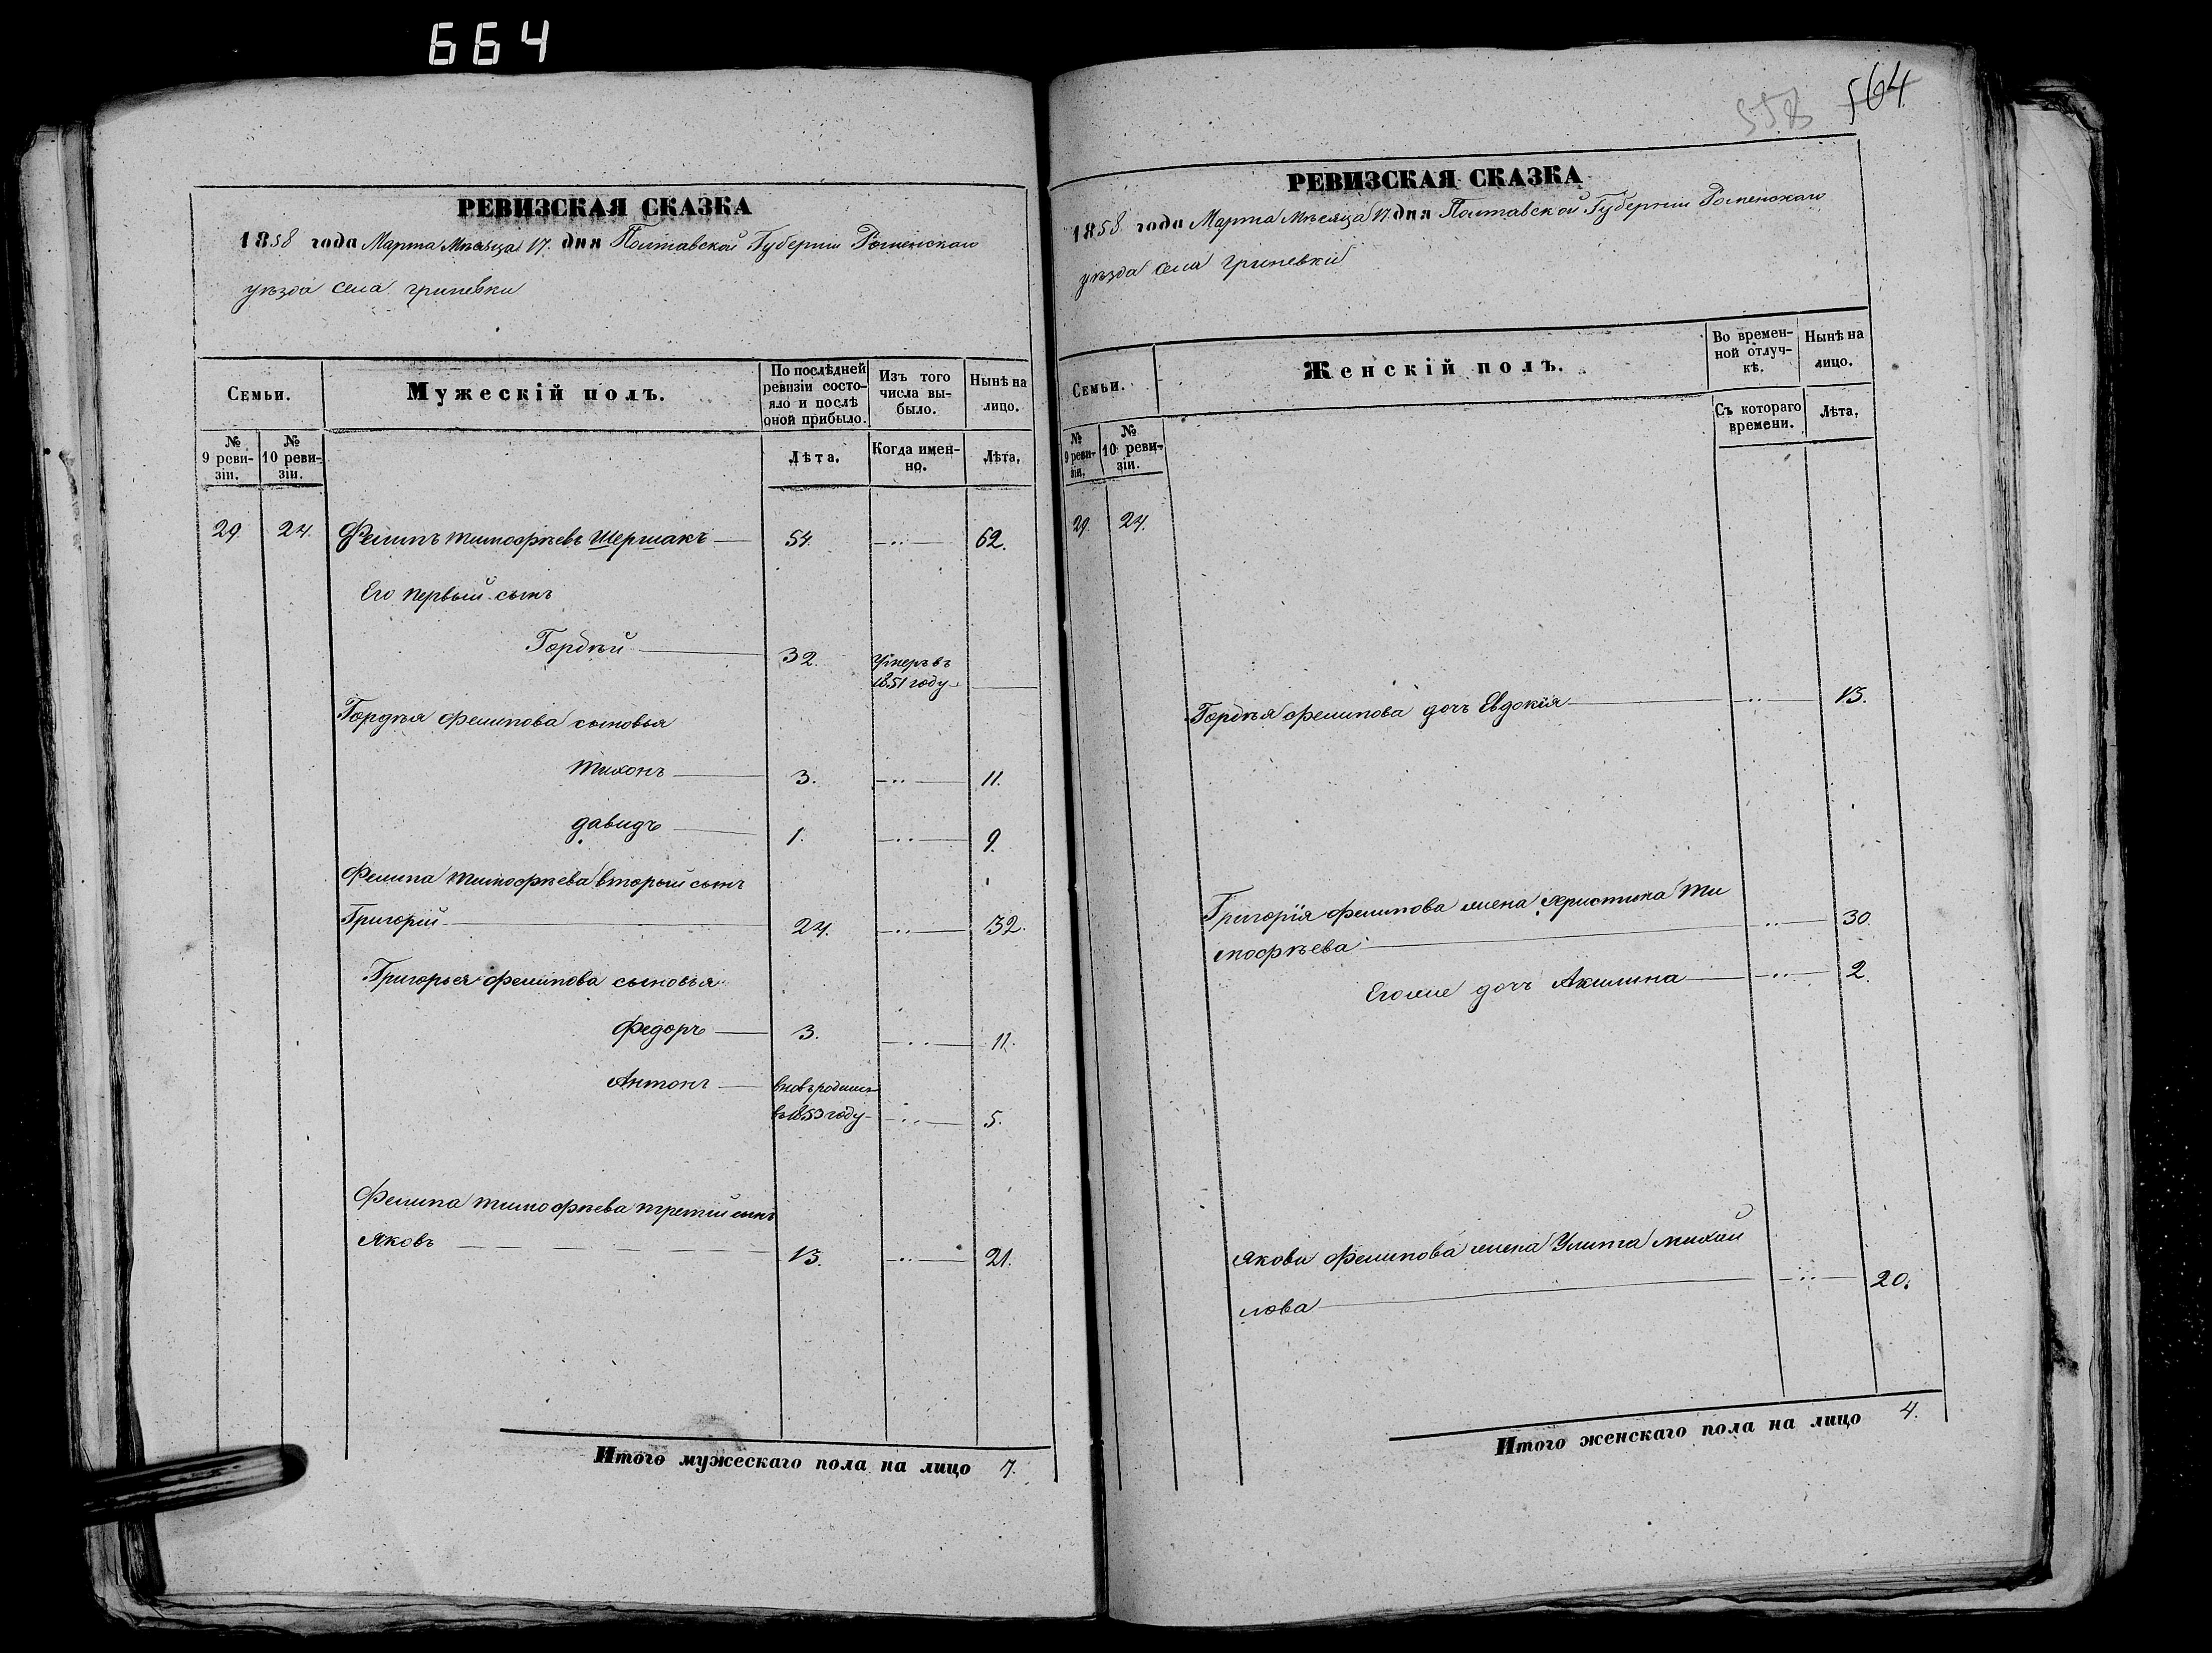 664
РЕВИЗСКАЯ СКАЗКА
1858 года Марта Мѣсяца 17. дня Полтавской Губернии Роменскаго
уѣзда села грипевки
Семьи.
Мужескій полъ.
По послѣдней
ревизіи состо-
яло и послѣ
оной прибыло.
Изъ того
числа вы-
было.
Нынѣ на
лицо.
№
9 реви-
зіи.
№
10 реви-
зіи.
Лѣта.
Когда имен-
но.
Лѣта.
29. 24. Фелипъ тимофѣевъ Шершакъ 54. 62.
Его первый сынъ
Гордѣй 32. Умеръ въ
1851 году
Гордѣя фелипова сыновья
тихонъ 3. 11.
давидъ 1. 9.
Фелипа тимофѣева вторый сынъ
Григорій 24. 32.
Григорья фелипова сыновья
федоръ 3. 11.
Антонъ вновь родился
въ 1853 году 5.
Фелипа тимофѣева третій сынъ
Яковъ 13. 21.
Итого мужескаго пола на лицо 7.
558 564
РЕВИЗСКАЯ СКАЗКА
1858 года Марта Мѣсяца 17. дня Полтавской Губерніи Роменскаго
уѣзда села грипевки
Семьи.
Женскій полъ.
Во времен-
ной отлуч-
кѣ.
Нынѣ на
лицо.
№
9 реви-
зіи.
№
10 реви-
зіи.
Съ котораго
времени.
Лѣта.
29. 24.
Гордѣя фелипова дочь Евдокія 13.
Григорія фелипова жена христина ти
мофѣева 30.
Егоже дочь Акилина 2.
Якова фелипова жена Улита михай
лова 20.
Итого женскаго пола на лицо 4.